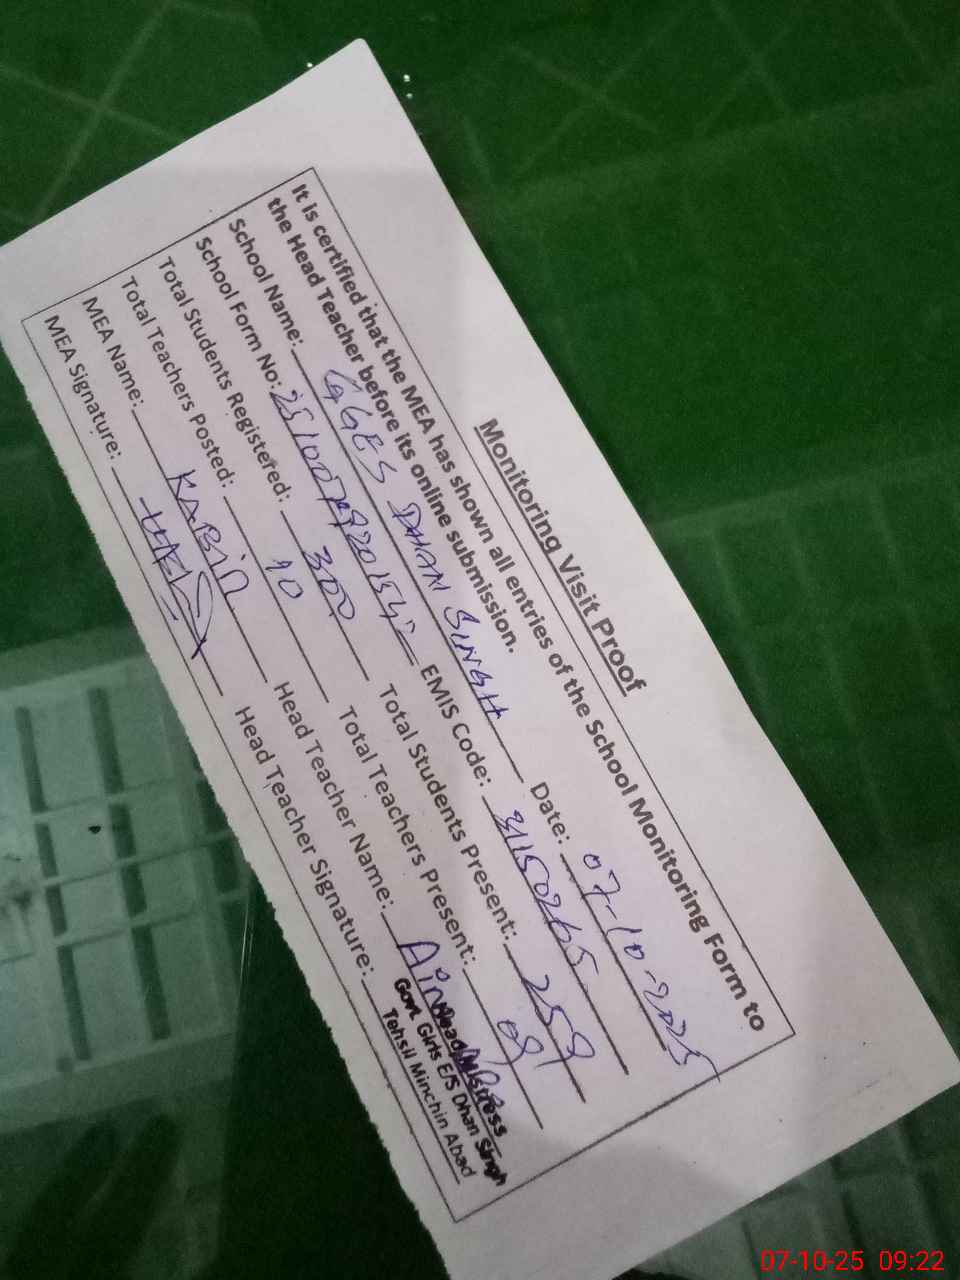 Monitoring Visit Proof
It is certified that the MEA has shown all entries of the School Monitoring Form to
the Head Teacher before its online submission.
School Name: GGES DHAN SINGH Date: 07-10-2025
School Form No: EMIS Code: 31150265
Total Students Registered: 300 Total Students Present: 259
Total Teachers Posted: 10 Total Teachers Present: 09
MEA Name: KABIR Head Teacher Name:
MEA Signature: Head Teacher Signature:
Head Mistress
Govt. Girls E/S Dhan Singh
Tehsil Minchin Abad
07-10-25 09:22